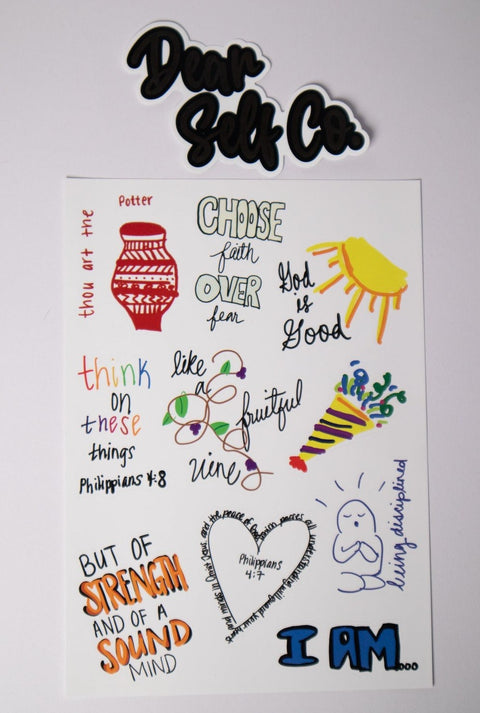 Dear
Self Co.
thou art the
Potter
CHOOSE
faith
OVER
fear
God
is
Good
think
on
these
things
Philippians 4:8
like
a
fruitful
vine
being disciplined
BUT OF
STRENGTH
AND OF A
SOUND
MIND
and the peace of God which passes all understanding will guard your heart and minds in Christ Jesus
Philippians
4:7
I AM....